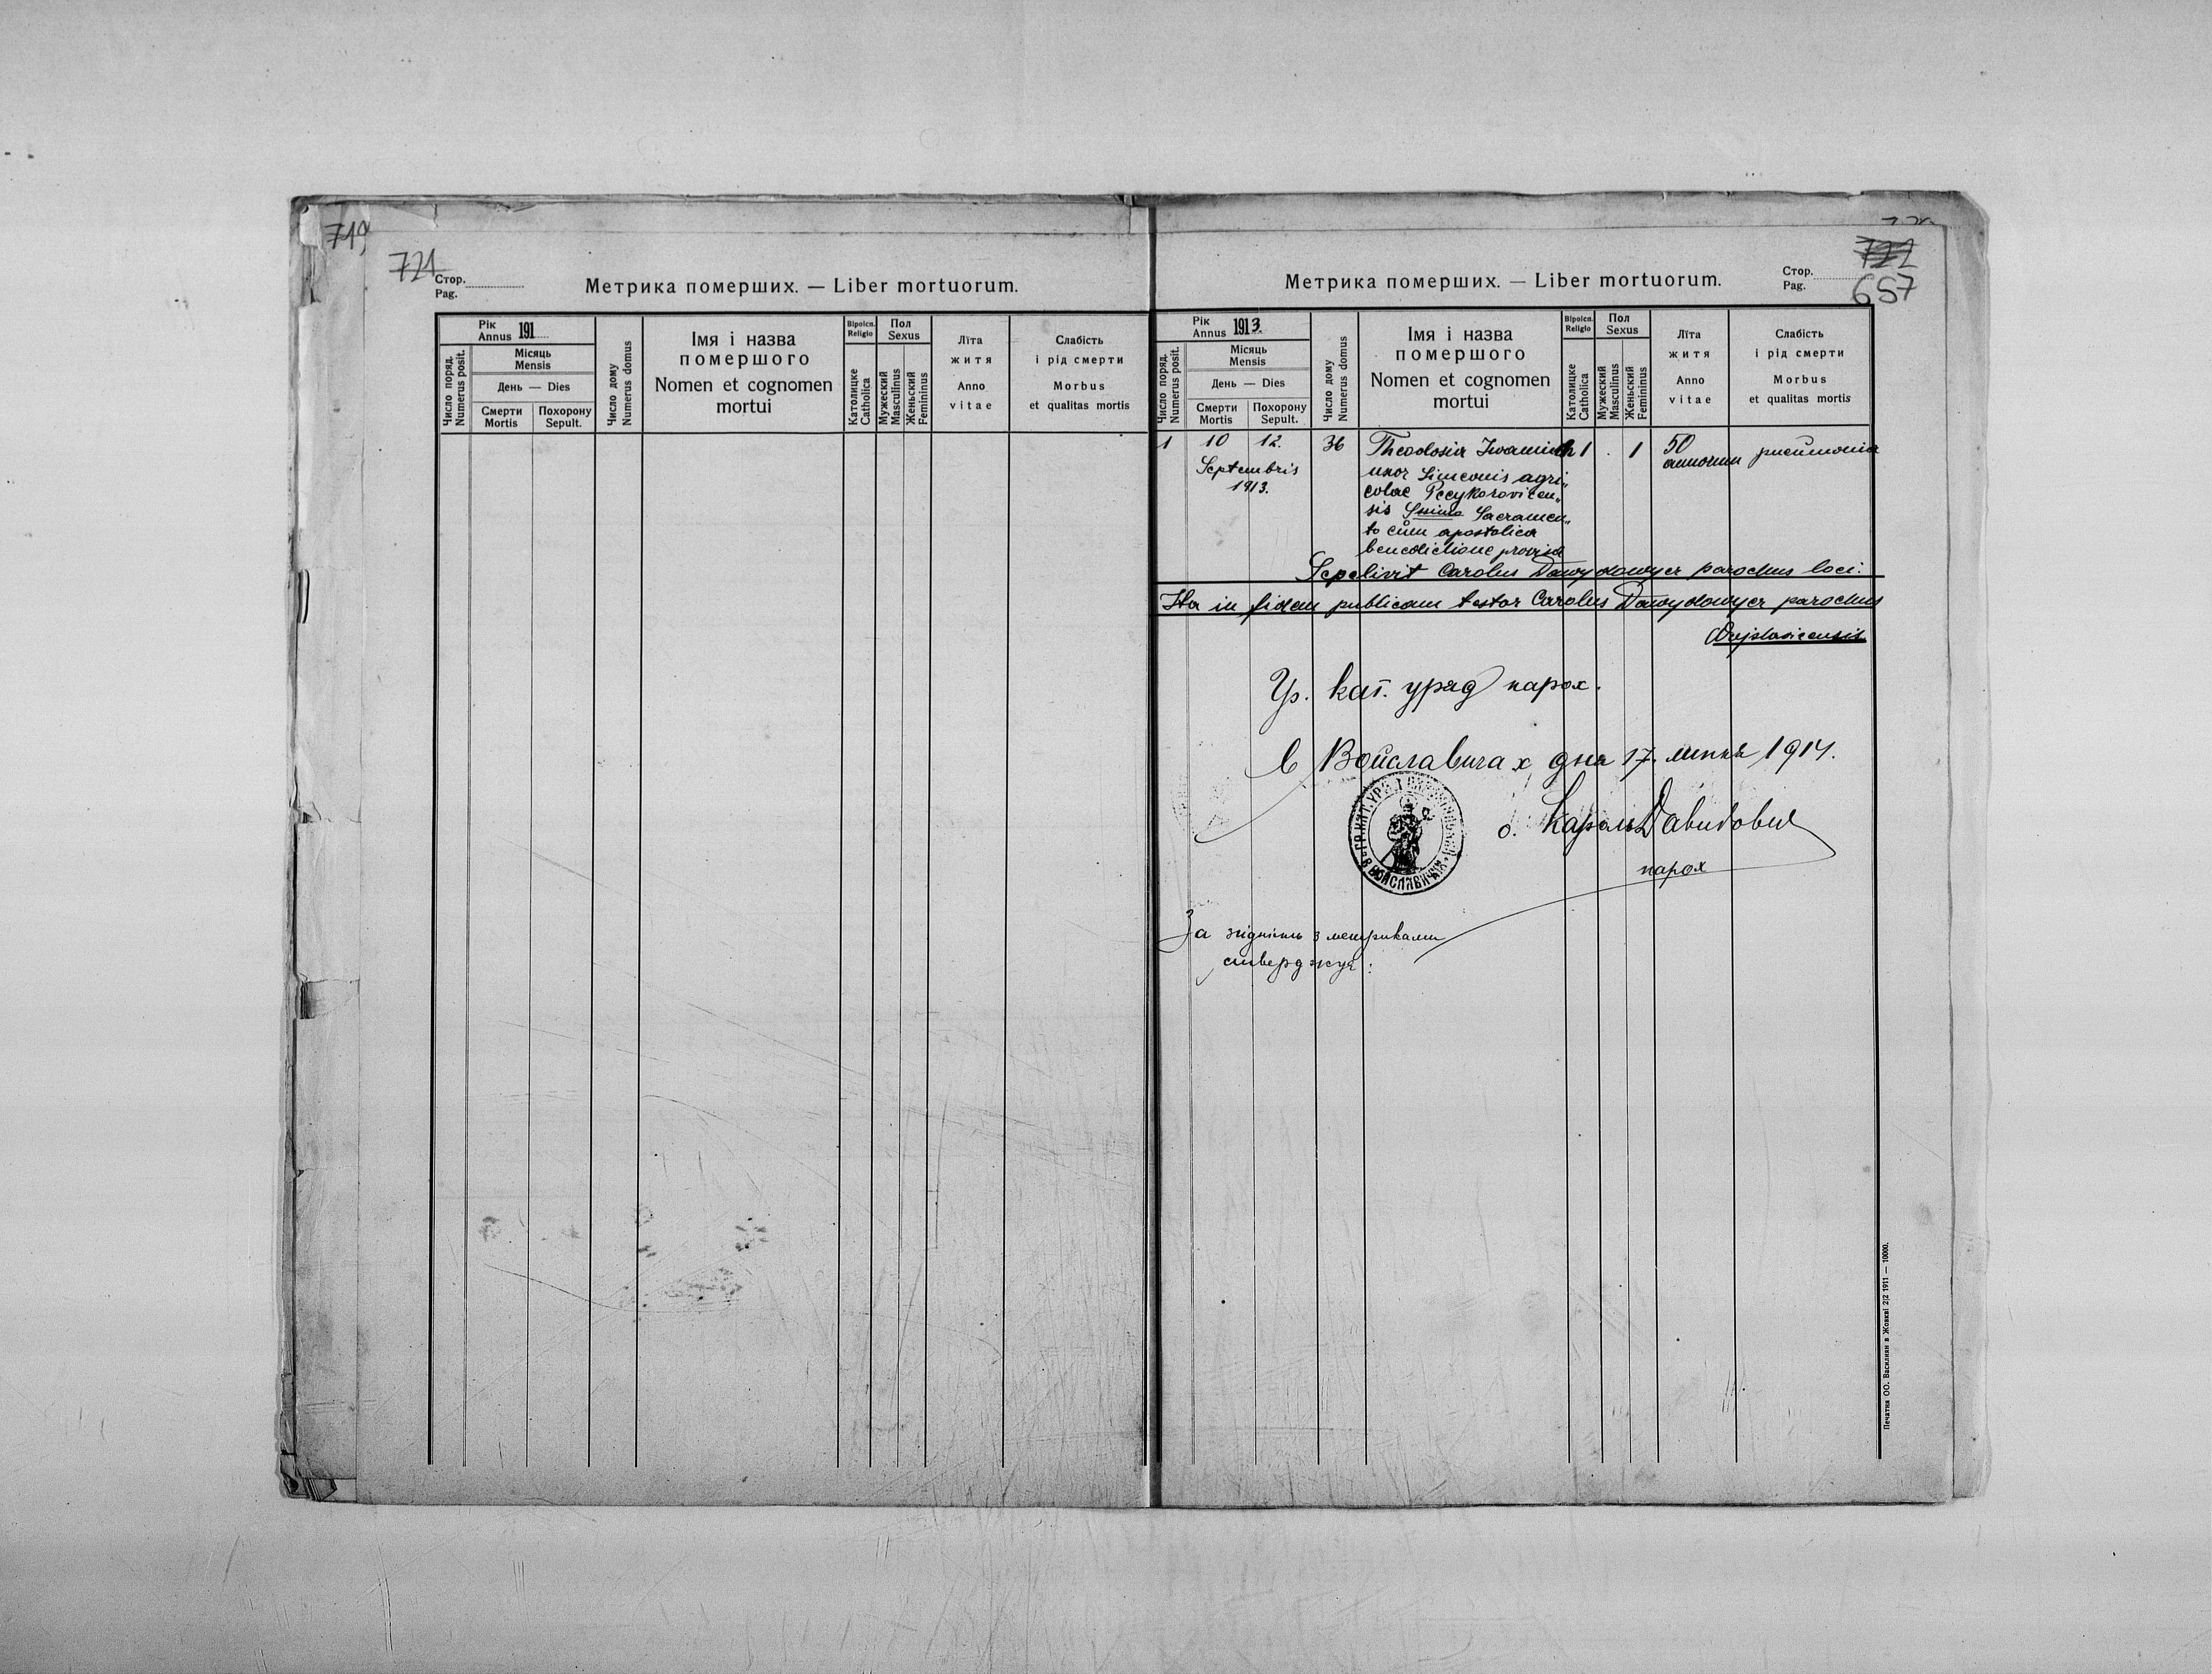 719
721
Стор.
Pag.
Метрика померших. — Liber mortuorum.
Рік
Annus 191
Місяць
Mensis
День — Dies
Смерти
Mortis
Похорону
Sepult.
Число поряд.
Numerus posit.
Число дому
Numerus domus
Імя і назва
помершого
Nomen et cognomen
mortui
Віроісп.
Religio
Католицке
Catholica
Пол
Sexus
Мужеский
Masculinus
Женьский
Femininus
Лїта
житя
Anno
vitae
Слабість
і рід смерти
Morbus
et qualitas mortis
Метрика померших. — Liber mortuorum.
Стор.
Pag.
722
657
Рік
Annus 1913
Місяць
Mensis
День — Dies
Смерти
Mortis
Похорону
Sepult.
Число поряд.
Numerus posit.
Число дому
Numerus domus
Імя і назва
помершого
Nomen et cognomen
mortui
Віроісп.
Religio
Католицке
Catholica
Пол
Sexus
Мужеский
Masculinus
Женьский
Femininus
Лїта
житя
Anno
vitae
Слабість
і рід смерти
Morbus
et qualitas mortis
1 10 12. 36 Theodosia 1 . 1 50 pneumonia
Septembris annorum
1913.
uxor Simeonis agri„
colae
sis Ssimo Sacramen„
to cum apostolica
benedictione provisa
Sepelivit Carolus Dawydowycz parochus loci.
Ita in fidem publicam testor Carolus Dawydowycz parochus
Wojslavicensis
Гр. кат. уряд парох.
в Войславичах дня 17. липня 1914.
ГР.КАТ. УРЯД ПАРОХІЯЛЬНИЙ В ВОЙСЛАВИЧАХ
о. Кароль Давидович
парох
За згідність з метриками
стверджує:
Печатня ОО. Василиян в Жовкві 2|2 1911 — 10000.